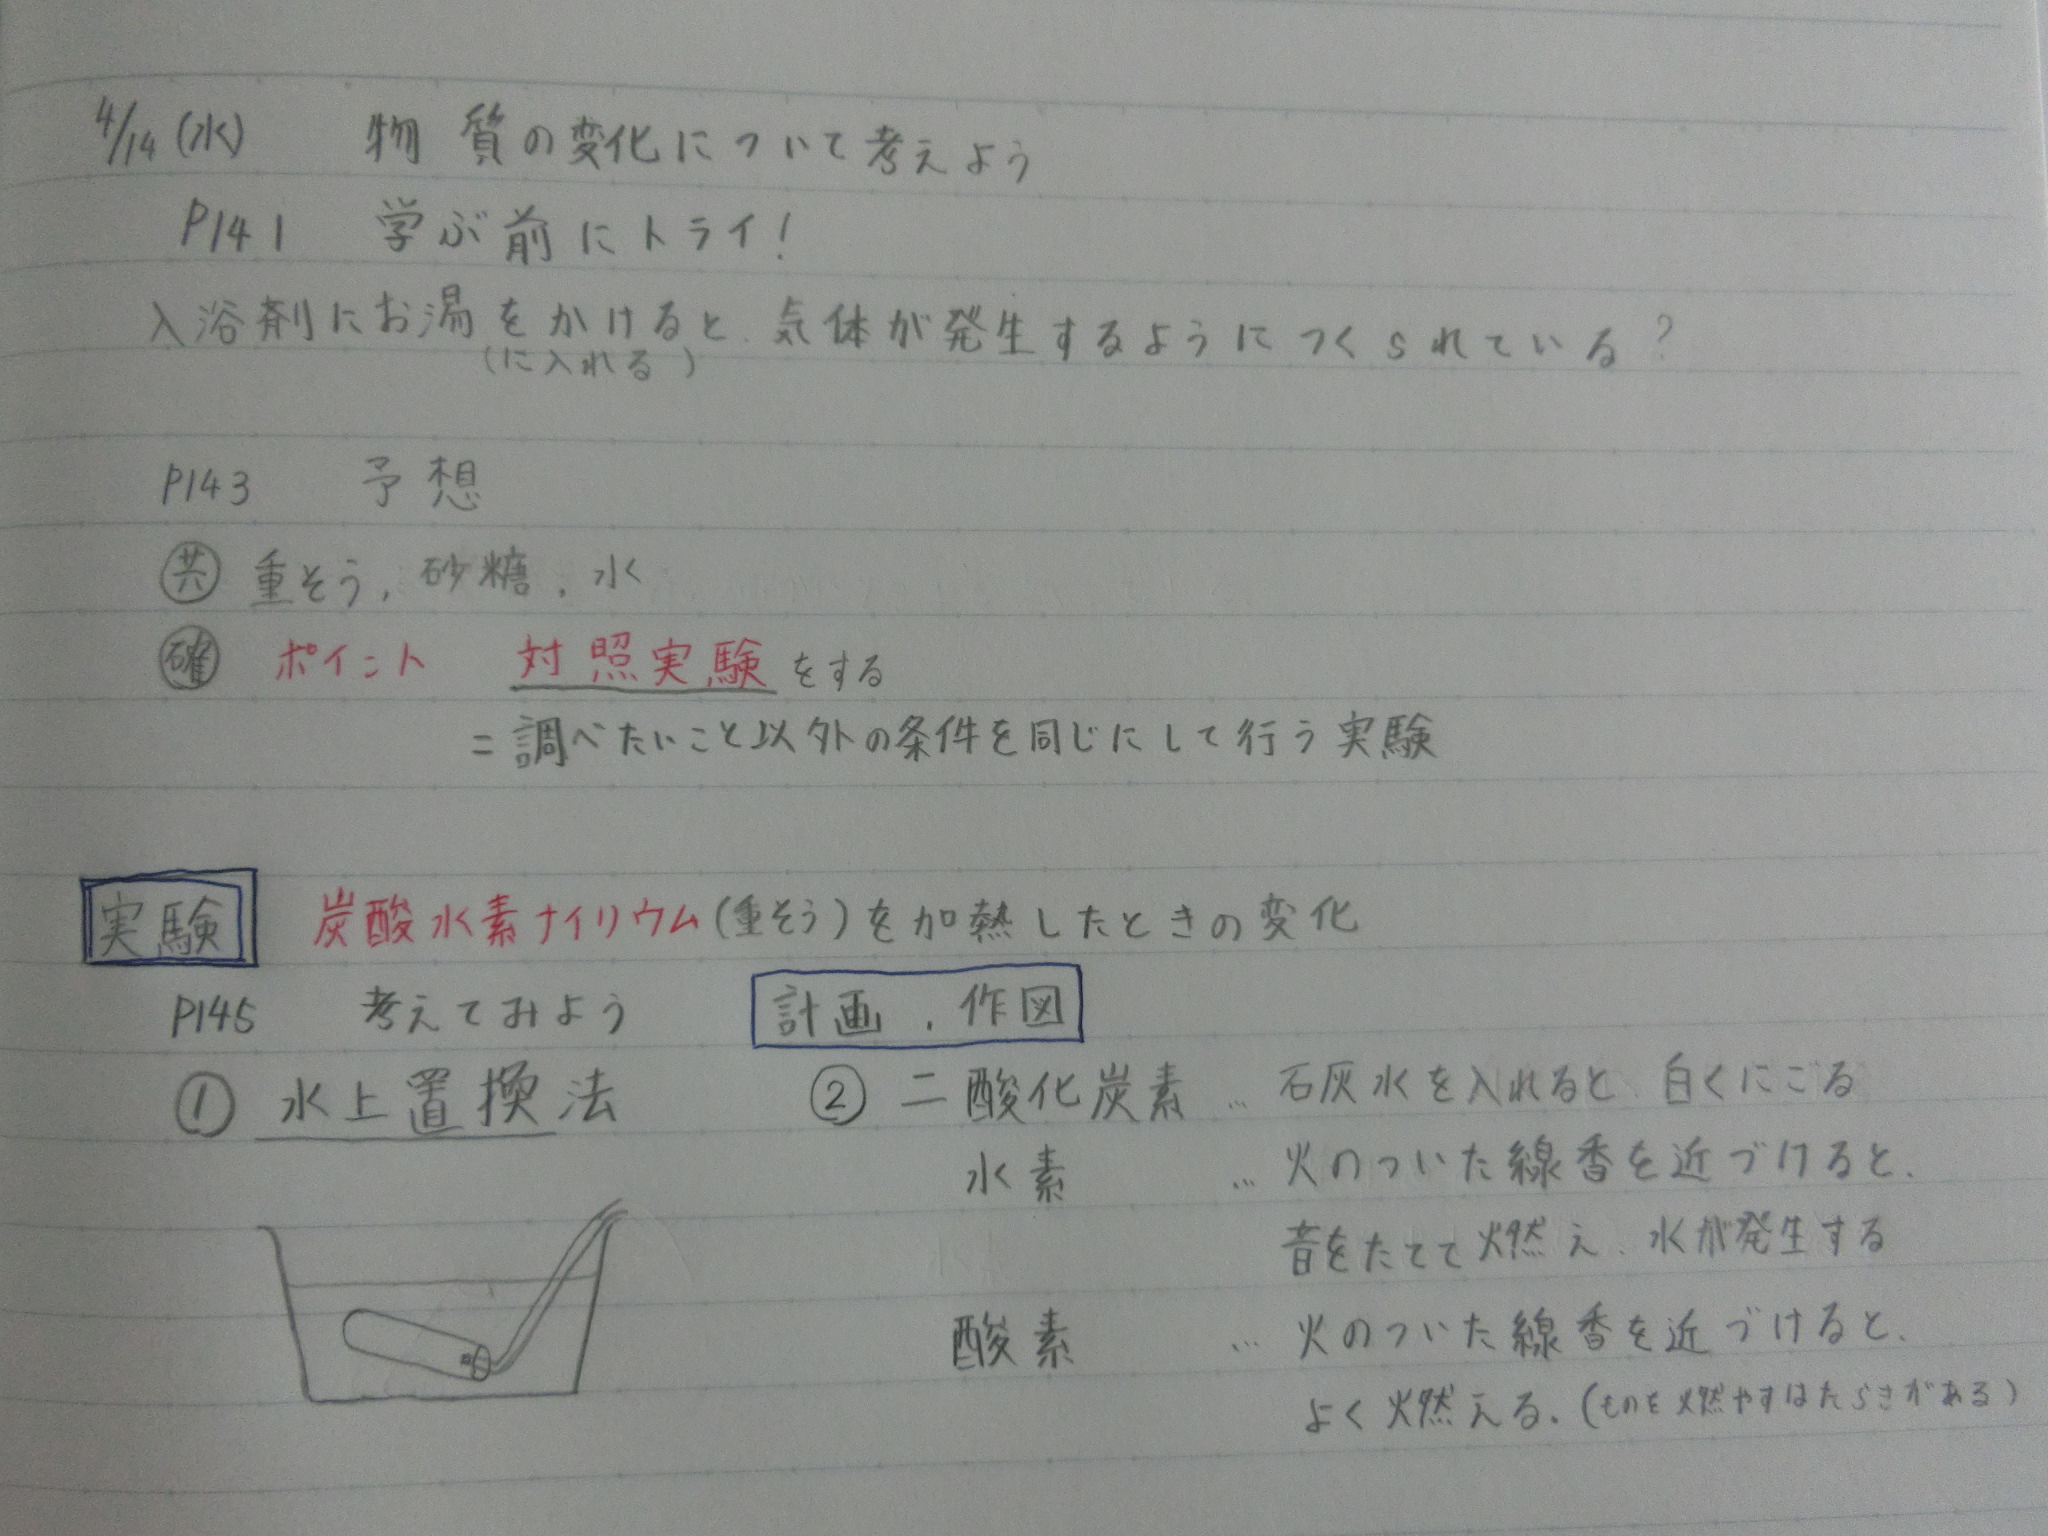 4/14(水) 物質の変化について考えよう
P141 学ぶ前にトライ!
入浴剤にお湯をかけると、気体が発生するようにつくられている?
(に入れる)
P143 予想
共 重そう、砂糖、水
確 ポイント 対照実験をする
=調べたいこと以外の条件を同じにして行う実験
実験 炭酸水素ナイリウム(重そう)を加熱したときの変化
P145 考えてみよう 計画、作図
① 水上置換法 ② 二酸化炭素 … 石灰水を入れると、白くにごる
水素 … 火のついた線香を近づけると、
音をたてて燃え、水が発生する
酸素 … 火のついた線香を近づけると、
よく燃える。(ものを燃やすはたらきがある)